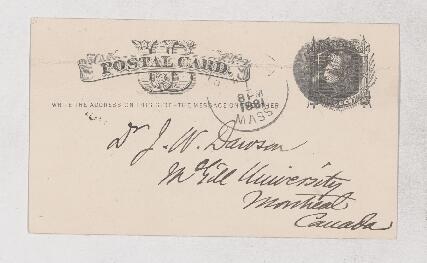 POSTAL CARD.
WRITE THE ADDRESS ON THIS SIDE-THE MESSAGE ON THE OTHER
8 PM
1881
MASS
Dr J. W. Dawson
McGill University
Montreal
Canada